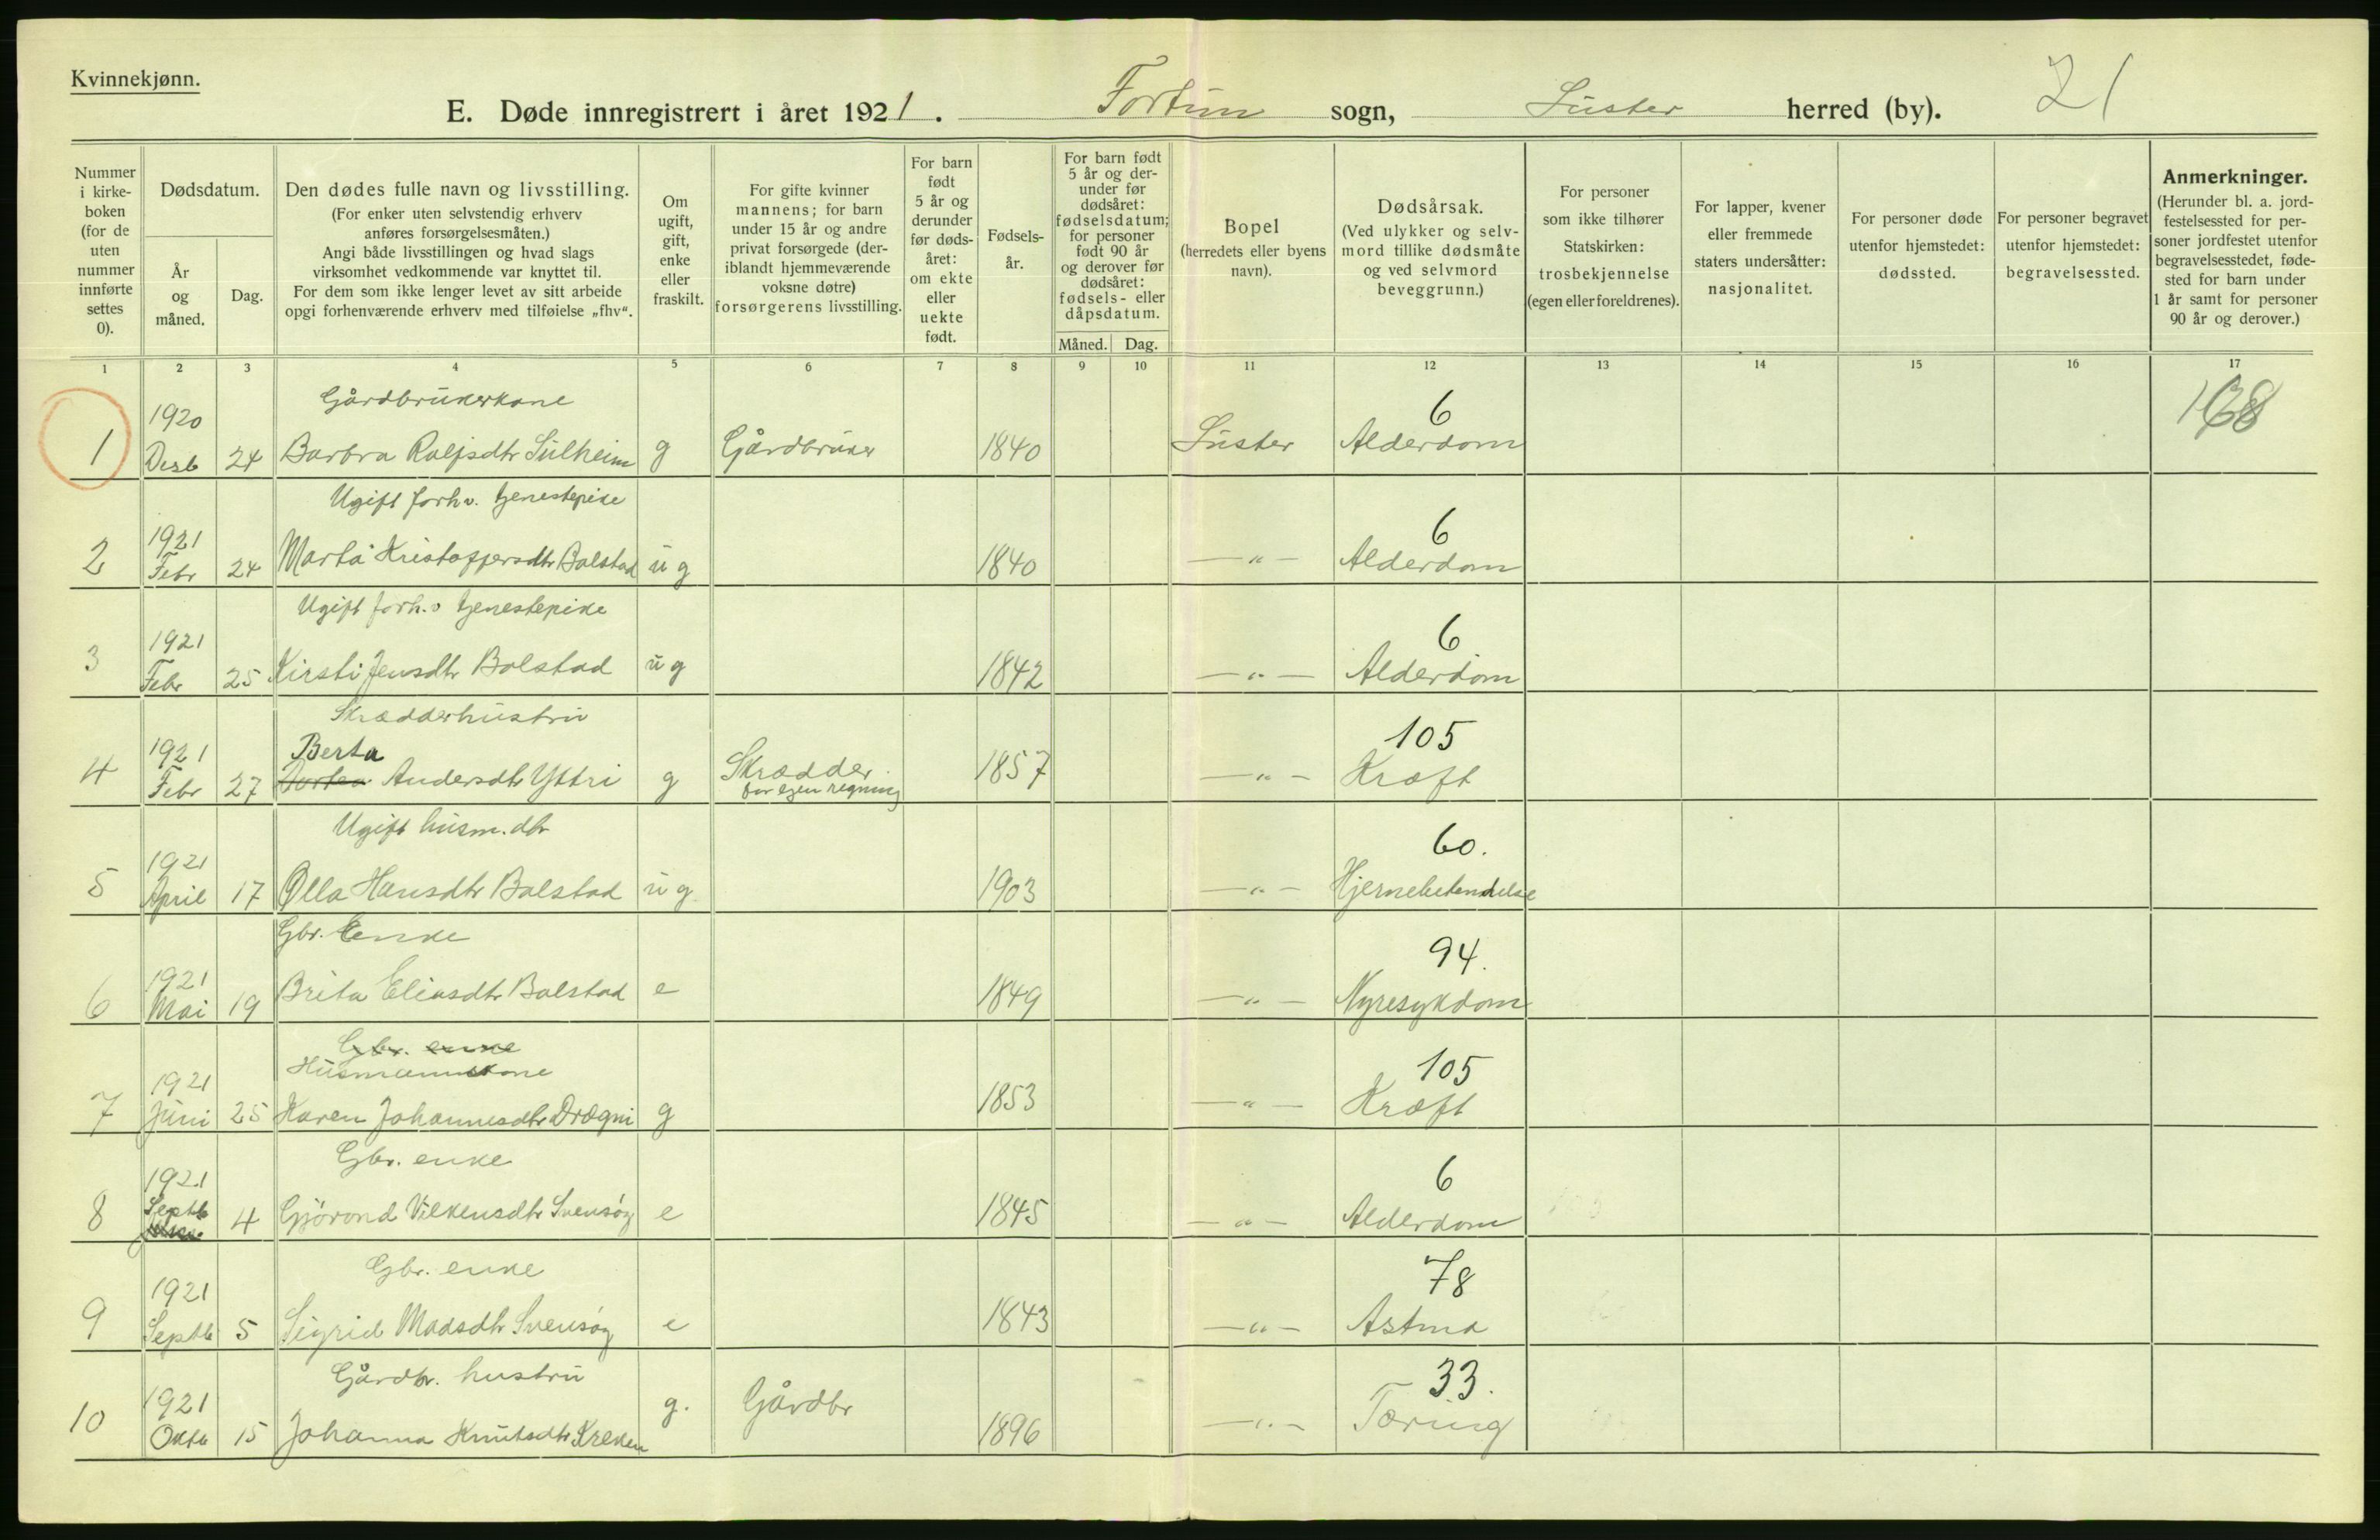 Kvinnekjønn.
E. Døde innregistrert i året 1921. Fortun sogn, Luster herred (by). 21
Nummer i kirke-boken (for de uten nummer innførte settes 0).
Dødsdatum.
År og måned.
Dag.
Den dødes fulle navn og livsstilling.
(For enker uten selvstendig erhverv
anføres forsørgelsesmåten.)
Angi både livsstillingen og hvad slags
virksomhet vedkommende var knyttet til.
For dem som ikke lenger levet av sitt arbeide
opgi forhenværende erhverv med tilføielse „fhv“.
Om ugift, gift, enke eller fraskilt.
For gifte kvinner
mannens; for barn
under 15 år og andre
privat forsørgede (der-
iblandt hjemmeværende
voksne døtre)
forsørgerens livsstilling.
For barn født 5 år og derunder før døds-året: om ekte eller uekte født.
Fødsels-år.
For barn født
5 år og der-
under før
dødsåret:
fødselsdatum;
for personer
født 90 år
og derover før
dødsåret:
fødsels- eller
dåpsdatum.
Måned. Dag.
Bopel
(herredets eller byens
navn).
Dødsårsak.
(Ved ulykker og selv-
mord tillike dødsmåte
og ved selvmord
beveggrunn.)
For personer
som ikke tilhører
Statskirken:
trosbekjennelse
(egen eller foreldrenes).
For lapper, kvener
eller fremmede
staters undersåtter:
nasjonalitet.
For personer døde
utenfor hjemstedet:
dødssted.
For personer begravet
utenfor hjemstedet:
begravelsessted.
Anmerkninger.
(Herunder bl. a. jord-
festelsessted for per-
soner jordfestet utenfor
begravelsesstedet, føde-
sted for barn under
1 år samt for personer
90 år og derover.)
1 2 3 4 5 6 7 8 9 10 11 12 13 14 15 16 17
1920 Gårdbrukerkone 6 168
1 Desb 24 Barbra Rolfsdtr Sulheim g Gårdbruker 1840 Luster Alderdom
1921 Ugift forhv. tjenestepike 6
2 Febr 24 Marta Kristoffersdtr Bolstad ug 1840 —"— Alderdom
1921 Ugift forh.v tjenestepike 6
3 Febr 25 Kirsti Jensdtr Bolstad ug 1842 —"— Alderdom
Skrædderhustru
1921 Berta 105
4 Febr 27 Andersdtr Yttri g Skrædder 1857 —"— Kræft
for egen regning
1921 Ugift husm. dtr 60.
5 April 17 Olla Hansdtr Bolstad ug 1903 —"— Hjernebetendelse
1921 Gbr. Enke 94.
6 Mai 19 Brita Eliasdtr Bolstad e 1849 —"— Nyresykdom
Gbr. enke
1921 Husmannskone 105
7 Juni 25 Karen Johannesdtr Drægni g 1853 —"— Kræft
1921 Gbr. enke 6
8 Septb 4 Gjörond Vilkensdtr Svensøy e 1845 —"— Alderdom
1921 Gbr. enke 78
9 Septb 5 Sigrid Madsdtr Svensøy e 1843 —"— Astma
1921 Gårdbr. hustru 33.
10 Oktb 15 Johanna Knutsdtr Kreken g. Gårdbr 1896 —"— Tæring